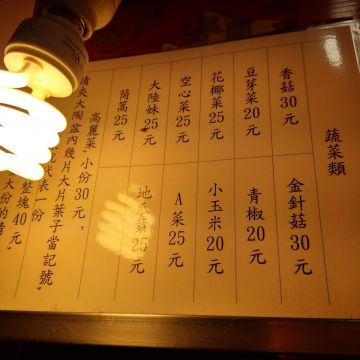 蔬菜類
香菇30元
金針菇30元
豆芽菜20元
青椒20元
花椰菜25元
小玉米20元
空心菜25元
A菜25元
大陸妹25元
地瓜葉25元
茼蒿25元
高麗菜，小份30元，
請夾大陶盆內幾片大片葉子當記號，
代表一份
整塊40元
大份的請